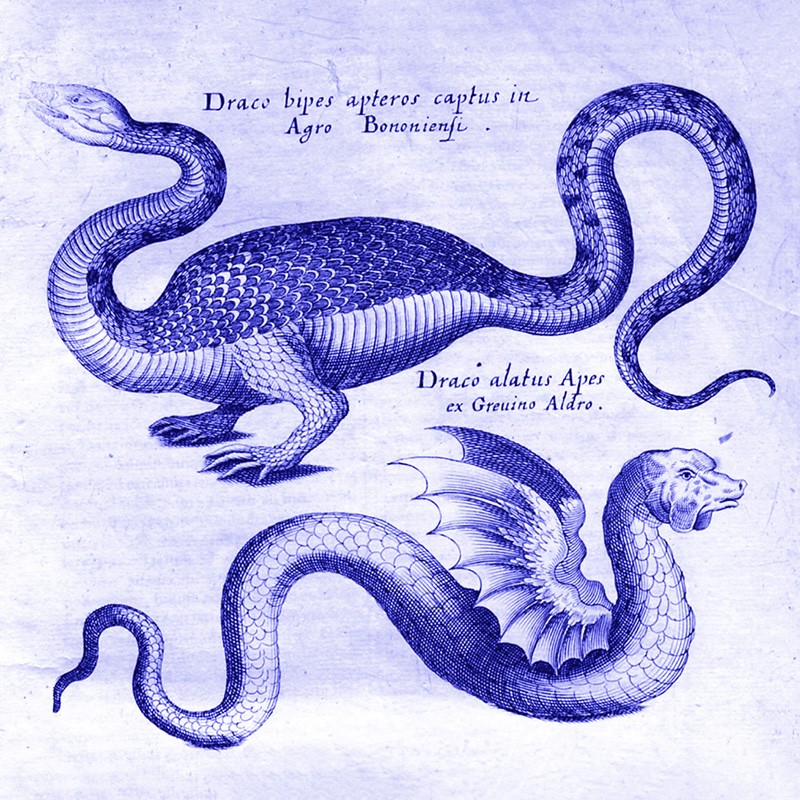 Draco bipes apteros captus in
Agro Bononiensi .
Draco alatus Apes
ex Greuino Aldro .